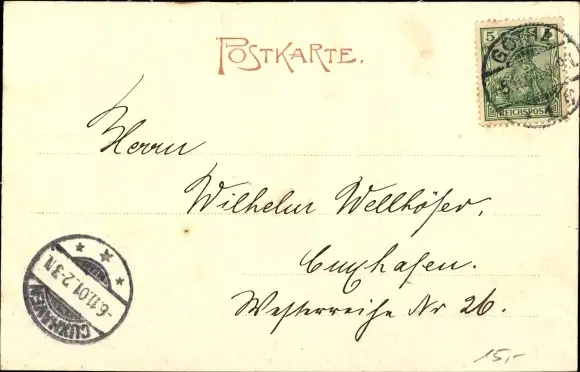 POSTKARTE.
5
GOTHA
REICHSPOST
Herrn
Wilhelm Wellhöfer,
Cuxhafen.
Westerreihe Nr 26.
CUXHAVEN
-6.11.01.2-3N.
15,-